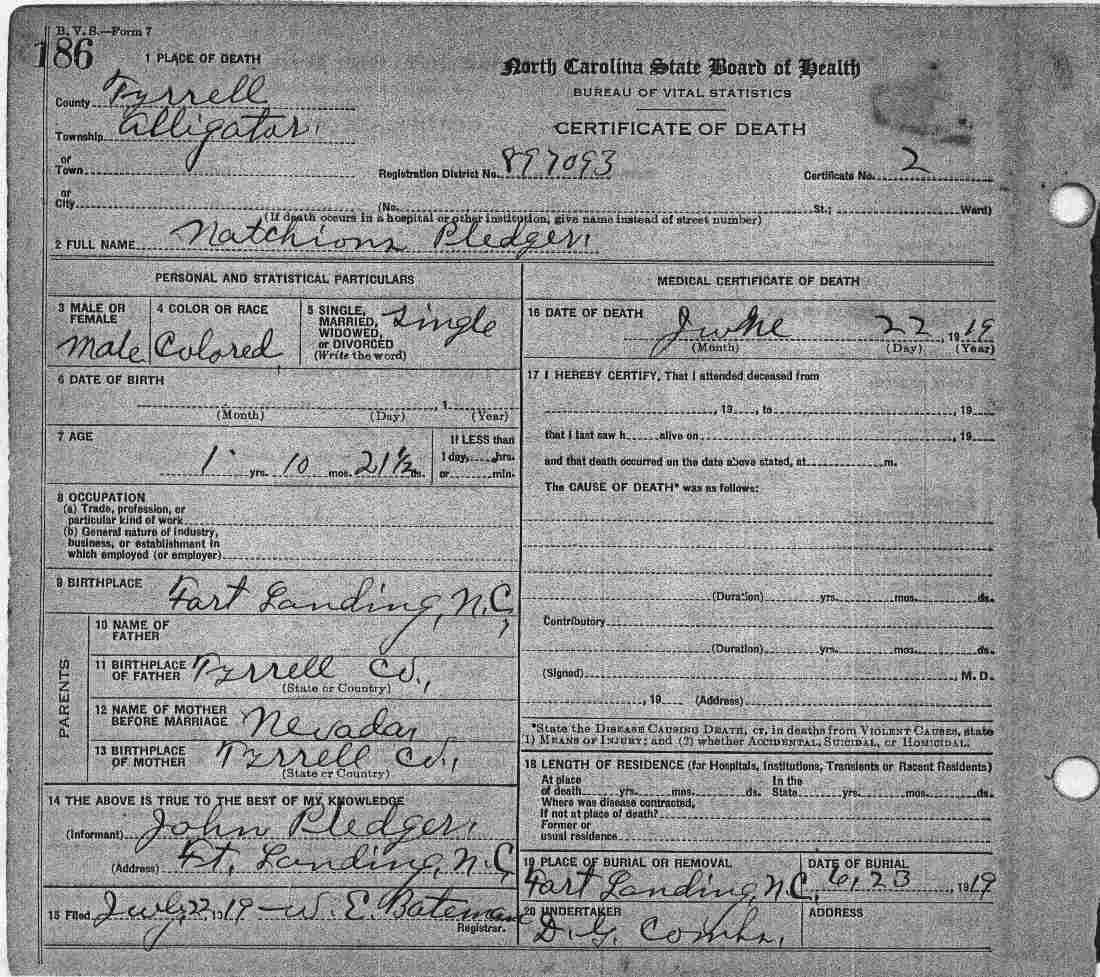 B. V. S.—Form 7
186
1 PLACE OF DEATH
North Carolina State Board of Health
BUREAU OF VITAL STATISTICS
CERTIFICATE OF DEATH
County Tyrrell
Township Alligator
or Town
Registration District No. 897093
Certificate No. 2
or City
(No. St.; Ward)
(If death occurs in a hospital or other institution, give name instead of street number)
2 FULL NAME Natchions Pledger
PERSONAL AND STATISTICAL PARTICULARS
3 MALE OR FEMALE Male
4 COLOR OR RACE Colored
5 SINGLE, MARRIED, WIDOWED, or DIVORCED (Write the word) Single
6 DATE OF BIRTH
(Month) (Day) , 1 (Year)
7 AGE
1 yrs. 10 mos. 21½ ds.
If LESS than
1 day, hrs.
or min.
8 OCCUPATION
(a) Trade, profession, or
particular kind of work
(b) General nature of industry,
business, or establishment in
which employed (or employer)
9 BIRTHPLACE Fort Landing, N.C,
PARENTS
10 NAME OF FATHER
11 BIRTHPLACE OF FATHER Tyrrell Co.,
(State or Country)
12 NAME OF MOTHER BEFORE MARRIAGE Nevada
13 BIRTHPLACE OF MOTHER Tyrrell Co.,
(State or Country)
14 THE ABOVE IS TRUE TO THE BEST OF MY KNOWLEDGE
(Informant) John Pledger
(Address) Ft. Landing, N.C,
15 Filed July 22 1919 - W. E. Bateman
Registrar.
MEDICAL CERTIFICATE OF DEATH
16 DATE OF DEATH
June 22, 1919
(Month) (Day) (Year)
17 I HEREBY CERTIFY, That I attended deceased from
, 19 , to , 19
that I last saw h alive on , 19
and that death occurred on the date above stated, at m.
The CAUSE OF DEATH* was as follows:
(Duration) yrs. mos. ds.
Contributory
(Duration) yrs. mos. ds.
(Signed) , M. D.
, 19 (Address)
*State the DISEASE CAUSING DEATH, or, in deaths from VIOLENT CAUSES, state
1) MEANS OF INJURY; and (2) whether ACCIDENTAL, SUICIDAL, or HOMICIDAL.
18 LENGTH OF RESIDENCE (for Hospitals, Institutions, Transients or Recent Residents)
At place of death yrs. mos. ds. In the State yrs. mos. ds.
Where was disease contracted,
If not at place of death?
Former or
usual residence
19 PLACE OF BURIAL OR REMOVAL
Fort Landing, N.C.
DATE OF BURIAL
6, 23, 1919
20 UNDERTAKER
D. G. Combs,
ADDRESS